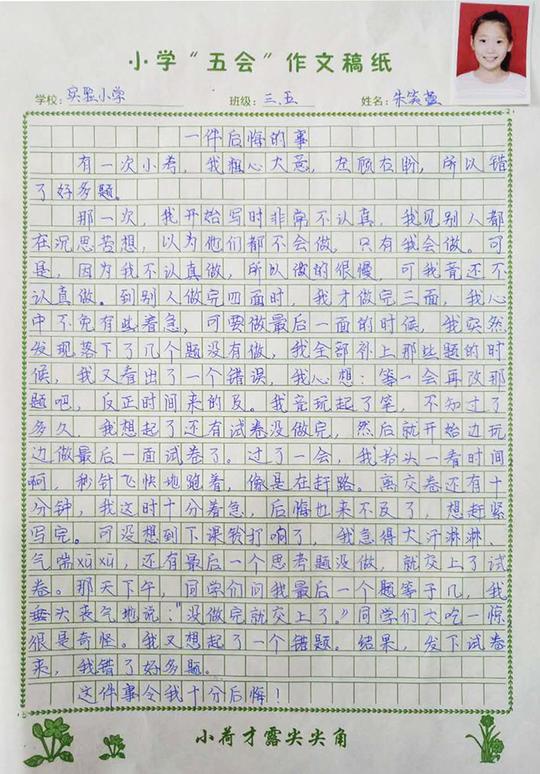 小学“五会”作文稿纸
学校：实验小学 班级：三.五 姓名：朱
一件后悔的事
有一次小考，我粗心大意，左顾右盼，所以错
了好多题。
那一次，我开始写时非常不认真，我见别人都
在沉思苦想，以为他们都不会做，只有我会做。可
是，因为我不认真做，所以做的很慢，可我竟还不
认真做。到别人做完四面时，我才做完三面，我心
中不免有些着急，可要做最后一面的时候，我突然
发现落下了几个题没有做，我全部补上那些题的时
候，我又看出了一个错误，我心想：等一会再改那
题吧，反正时间来的及。我竟玩起了笔，不知过了
多久，我想起了还有试卷没做完，然后就开始边玩
边做最后一面试卷了。过了一会，我抬头一看时间
啊，秒针飞快地跑着，像是在赶路。离交卷还有十
分钟，我这时十分着急，后悔也来不及了，想赶紧
写完。可没想到下课铃打响了，我急得大汗淋淋、
气喘xūxū，还有最后一个思考题没做，就交上了试
卷。那天下午，同学们问我最后一个题等于几，我
垂头丧气地说：“没做完就交上了。”同学们大吃一惊
很是奇怪。我又想起了一个错题。结果，发下试卷
来，我错了好多题。
这件事令我十分后悔！
小荷才露尖尖角